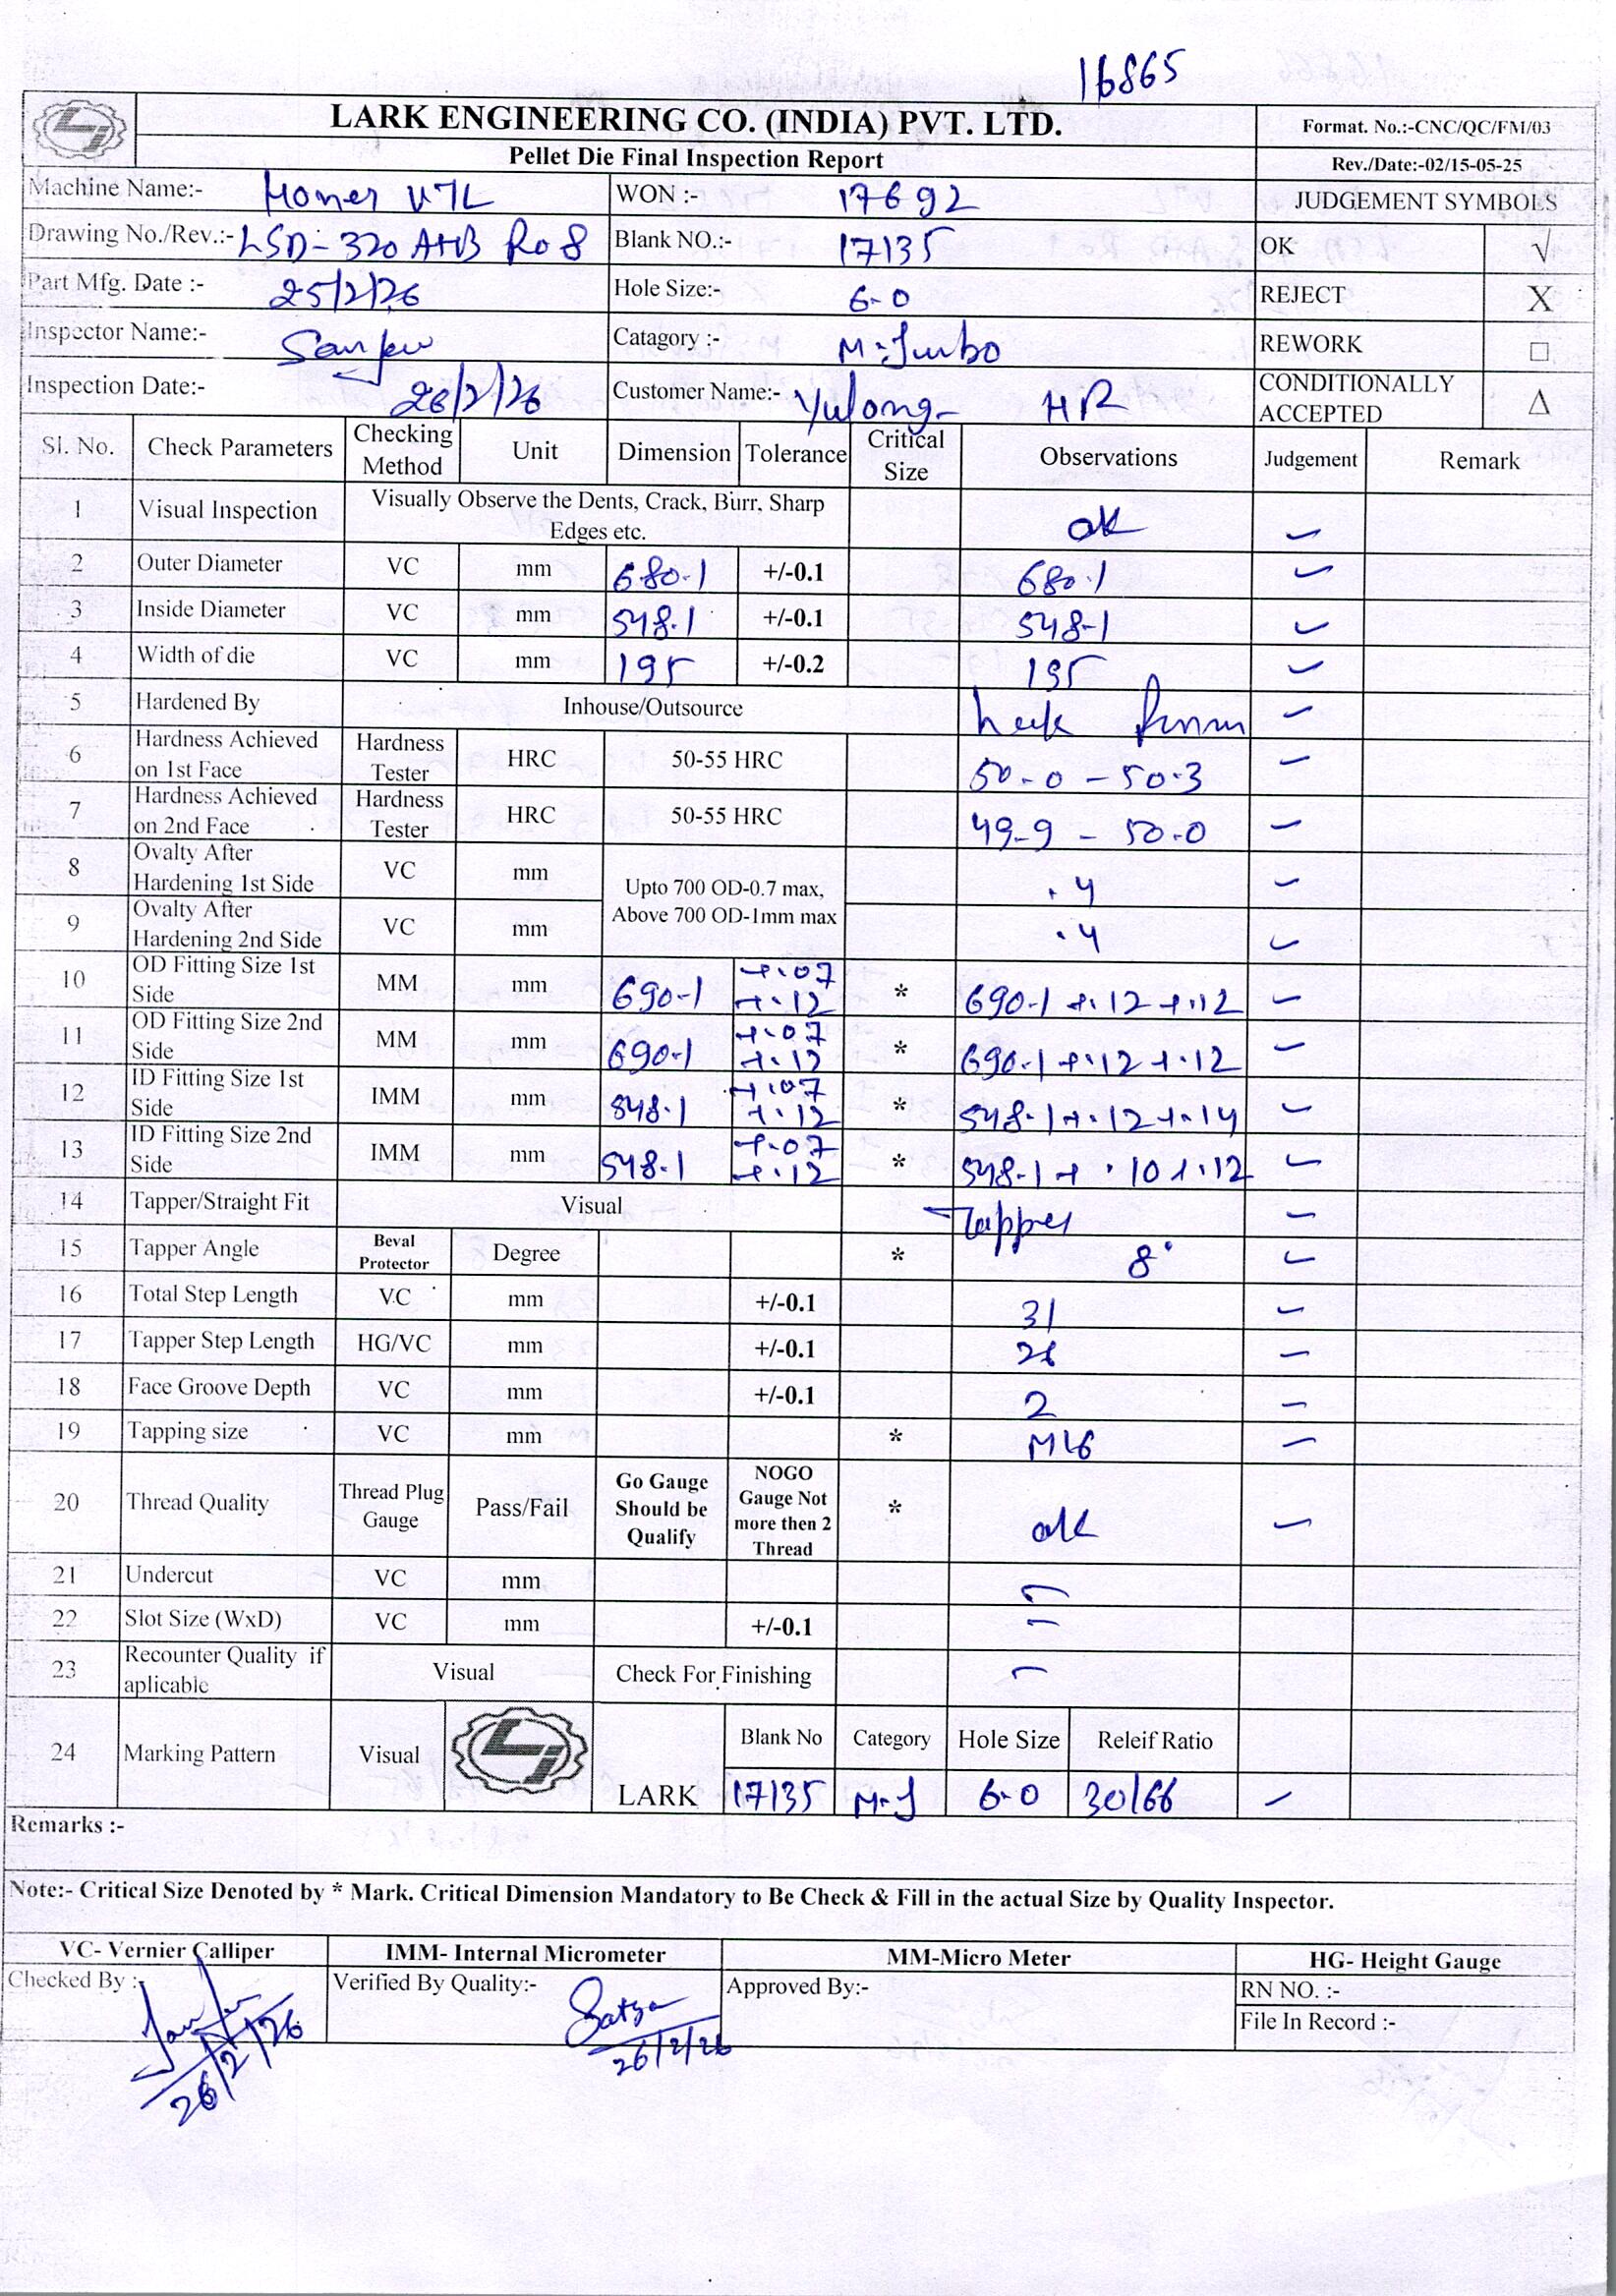 16865
LARK ENGINEERING CO. (INDIA) PVT. LTD.
Format. No.:-CNC/QC/FM/03
Pellet Die Final Inspection Report
Rev./Date:-02/15-05-25
Machine Name:- VTL WON :- 17692 JUDGEMENT SYMBOLS
Drawing No./Rev.:- LSD-320 A+B R08 Blank NO.:- 17135 OK √
Part Mfg. Date :- 25/2/26 Hole Size:- 6-0 REJECT X
Inspector Name:- Catagory :- M-Jumbo REWORK □
Inspection Date:- 26/2/26 Customer Name:- Yulong- HR CONDITIONALLY ACCEPTED Δ
Sl. No. Check Parameters Checking Method Unit Dimension Tolerance Critical Size Observations Judgement Remark
1 Visual Inspection Visually Observe the Dents, Crack, Burr, Sharp Edges etc. ok
2 Outer Diameter VC mm 680.1 +/-0.1 680.1
3 Inside Diameter VC mm 548.1 +/-0.1 548-1
4 Width of die VC mm 195 +/-0.2 195
5 Hardened By Inhouse/Outsource
6 Hardness Achieved on 1st Face Hardness Tester HRC 50-55 HRC 50-0 - 50.3
7 Hardness Achieved on 2nd Face Hardness Tester HRC 50-55 HRC 49-9 - 50.0
8 Ovalty After Hardening 1st Side VC mm Upto 700 OD-0.7 max, Above 700 OD-1mm max .4
9 Ovalty After Hardening 2nd Side VC mm .4
10 OD Fitting Size 1st Side MM mm 690-1 +.07 +.12 * 690-1 +.12 +.12
11 OD Fitting Size 2nd Side MM mm 690-1 +.07 +.12 * 690-1 +.12 +.12
12 ID Fitting Size 1st Side IMM mm 548-1 +.07 +.12 * 548-1 +.12 +.14
13 ID Fitting Size 2nd Side IMM mm 548-1 +.07 +.12 * 548-1 + .10 +.12
14 Tapper/Straight Fit Visual Tapper
15 Tapper Angle Beval Protector Degree * 8°
16 Total Step Length VC mm +/-0.1 31
17 Tapper Step Length HG/VC mm +/-0.1
18 Face Groove Depth VC mm +/-0.1 2
19 Tapping size VC mm * M16
20 Thread Quality Thread Plug Gauge Pass/Fail Go Gauge Should be Qualify NOGO Gauge Not more then 2 Thread * ok
21 Undercut VC mm
22 Slot Size (WxD) VC mm +/-0.1
23 Recounter Quality if aplicable Visual Check For Finishing
24 Marking Pattern Visual LARK Blank No Category Hole Size Releif Ratio
17135 M-J 6-0 30/66
Remarks :-
Note:- Critical Size Denoted by * Mark. Critical Dimension Mandatory to Be Check & Fill in the actual Size by Quality Inspector.
VC- Vernier Calliper IMM- Internal Micrometer MM-Micro Meter HG- Height Gauge
Checked By : 26/2/26 Verified By Quality:- 26/2/26 Approved By:- RN NO. :-
File In Record :-